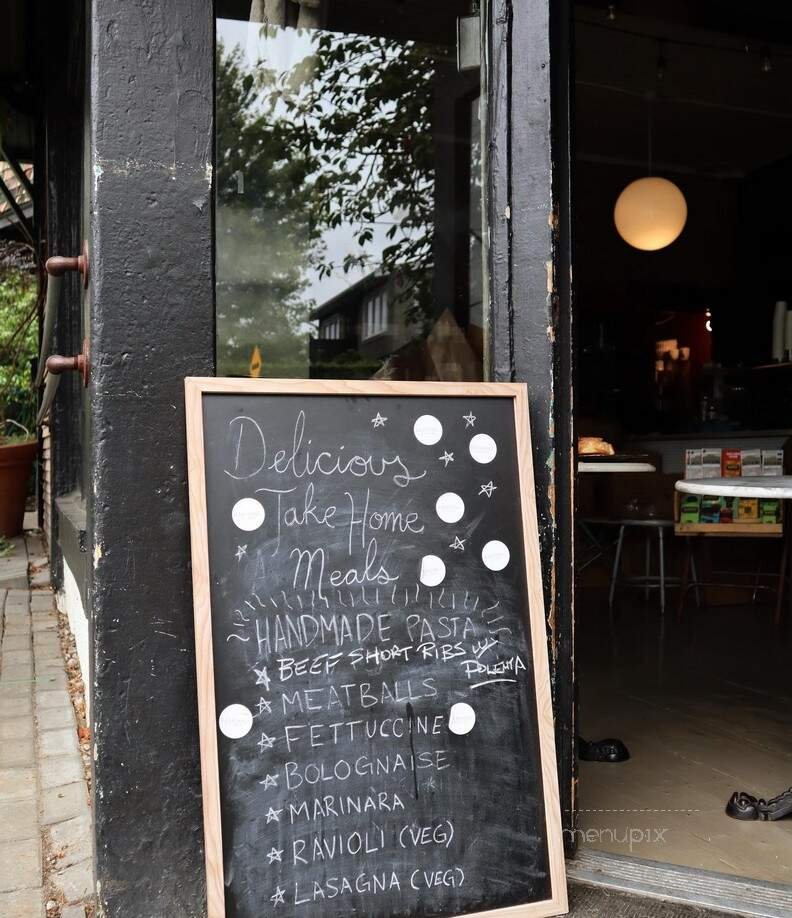 Delicious
Take Home
Meals
HANDMADE PASTA
BEEF SHORT RIBS W/
POLENTA
MEATBALLS
FETTUCCINE
BOLOGNAISE
MARINARA
RAVIOLI (VEG)
LASAGNA (VEG)
menupix